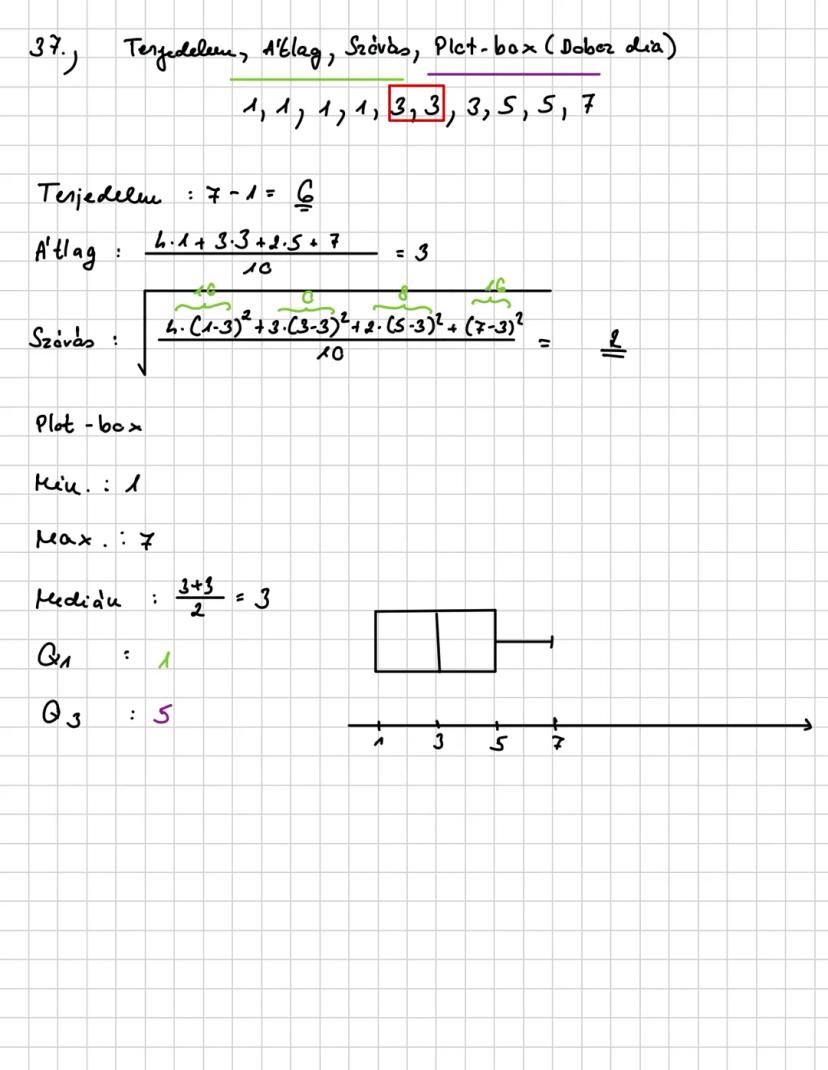 37.) Terjedelem, Átlag, Szórás, Plot-box (Doboz dia)
1, 1, 1, 1, 3, 3, 3, 5, 5, 7
Terjedelem : 7 - 1 = 6
Átlag : (4·1 + 3·3 + 2·5 + 7) / 10 = 3
16 0 8 16
Szórás : √((4·(1-3)² + 3·(3-3)² + 2·(5-3)² + (7-3)²) / 10) = 2
Plot-box
Min. : 1
Max. : 7
Medián : (3+3) / 2 = 3
Q1 : 1
Q3 : 5
1 3 5 7